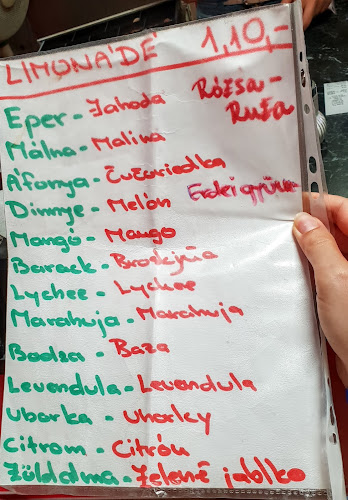 LIMONÁDÉ 1,10,-
Rózsa-
Ruža
Eper - Jahoda
Málna - Malina
Áfonya - Čučoriedka
Erdei gyümölcs
Dinnye - Melón
Mangó - Mango
Barack - Broskyňa
Lychee - Lychee
Marahuja - Marahuja
Bodza - Baza
Levendula - Levendula
Uborka - Uhorky
Citrom - Citrón
Zöldalma - Zelené jablko